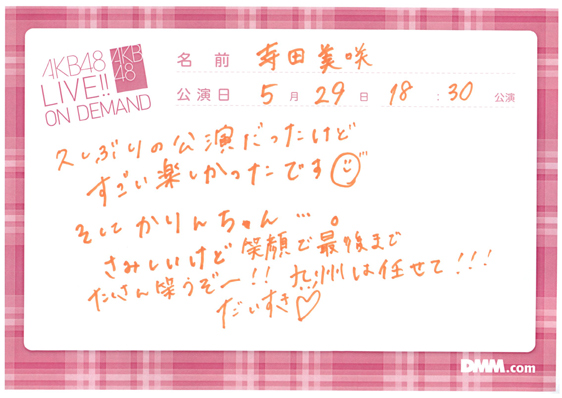 AKB48
LIVE!!
ON DEMAND
AKB
48
名前 寺田美咲
公演日 5月29日 18:30 公演
久しぶりの公演だったけど
すごい楽しかったです
そしてかりんちゃん…。
さみしいけど笑顔で最後まで
たくさん笑うぞー!! 九州は任せて!!!
だいすき♡
DMM.com